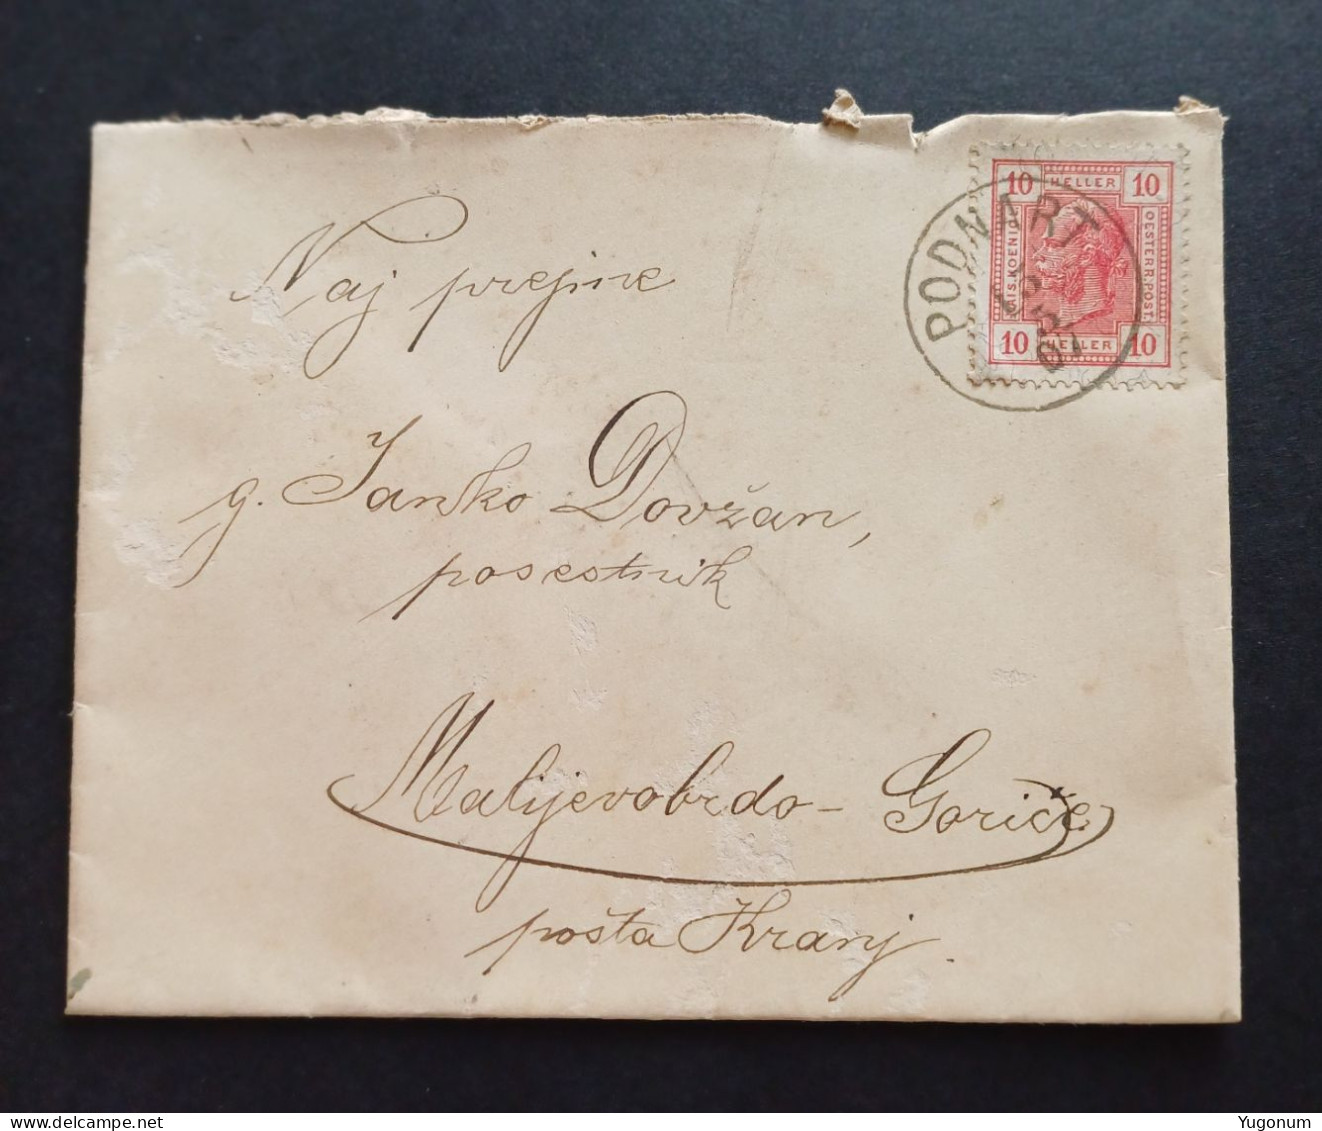 10 HELLER 10
KAIS. KOENIGL. OESTERR. POST.
10 HELLER 10
PODNART
Naj prejme
g. Janko Dovžan,
posestnik
Malijevobrdo - Goriče
pošta Kranj.
www.delcampe.net
Yugonum